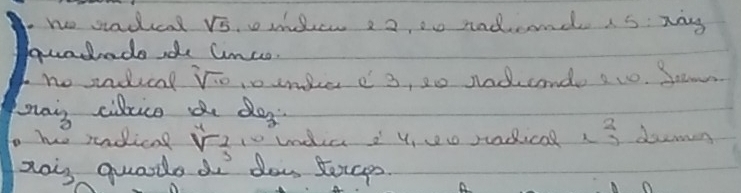 . no radical √5, o índice é 2, e o radicando é 5: raiz
quadrada de cinco.
. no radical ³√10, o índice é 3, e o radicando é 10. Lemos
raiz cúbica de dez.
. no radical ⁴√2/3, o índice é 4, e o radical é 2/3 lemos
raiz quarta de dois terços.